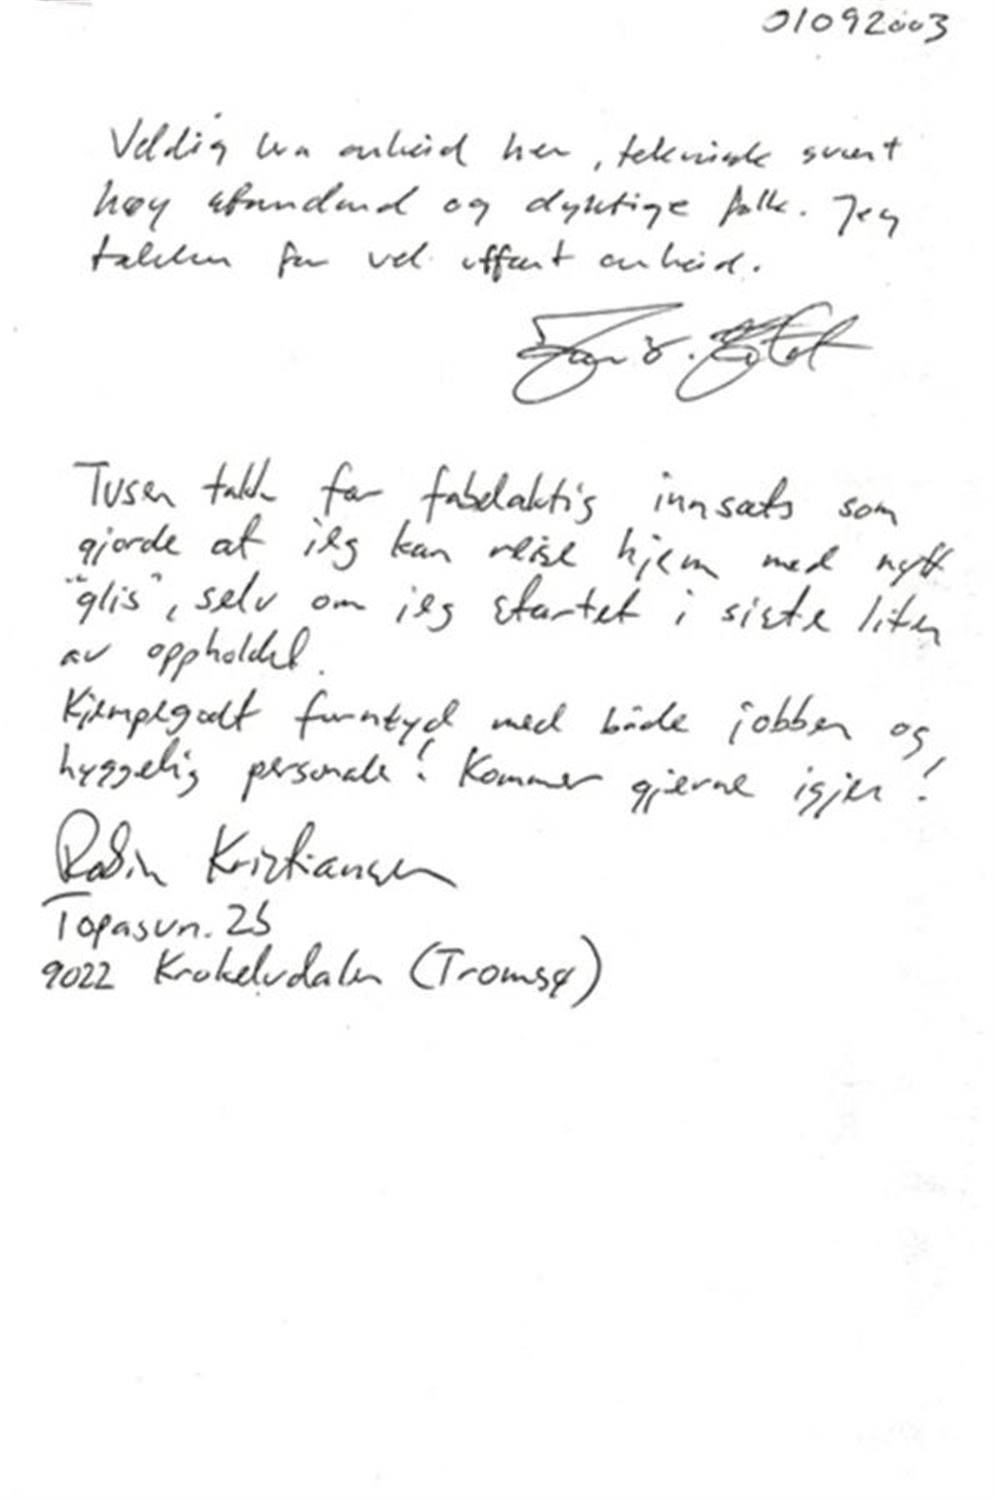 01092003
Veldig bra arbeid her, teknisk svært
høy standard og dyktige folk. Jeg
takker for vel utført arbeid.
Tusen takk for fabelaktig innsats som
gjorde at jeg kan reise hjem med nytt
"glis", selv om jeg startet i siste liten
av oppholdet.
Kjempegodt fornøyd med både jobben og
hyggelig personale! Kommer gjerne igjen!
Robin Kristiansen
Topasvn. 25
9022 Krokelvdalen (Tromsø)